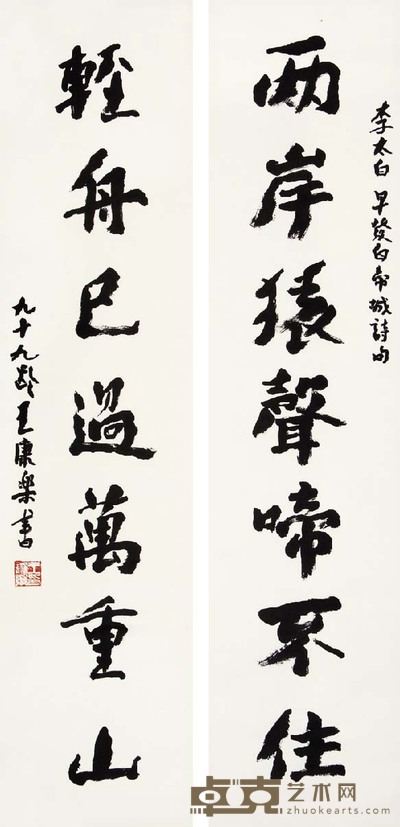 李太白早發白帝城詩句
两岸猿聲啼不住
輕舟已過萬重山
九十九齡王康樂書
卓克艺术网
zhuokearts.com